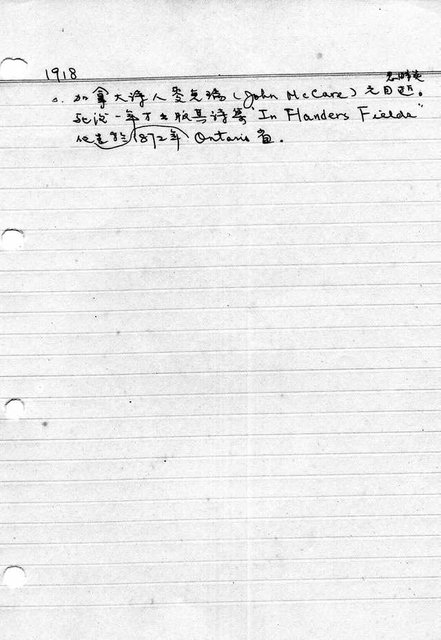 1918
△. 加拿大诗人麥克瑞 (John McCare) 是日逝。
死後一年才出版其诗集 "In Flanders Fields"
他生於 1872年 Ontario 省.